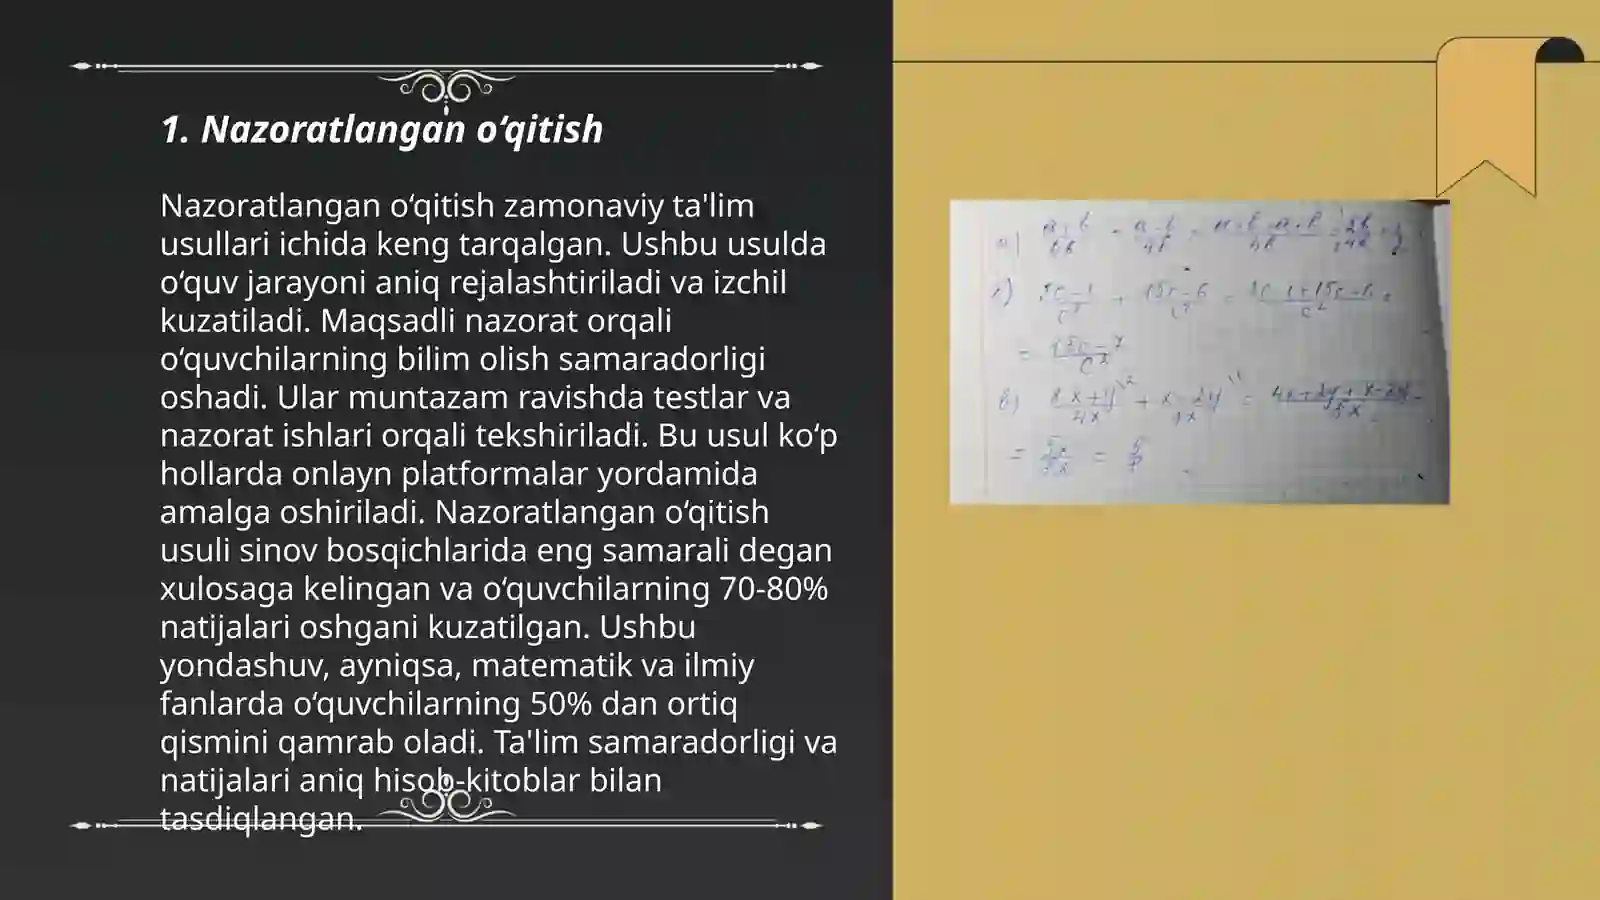 1. Nazoratlangan o‘qitish
Nazoratlangan o‘qitish zamonaviy ta'lim
usullari ichida keng tarqalgan. Ushbu usulda
o‘quv jarayoni aniq rejalashtiriladi va izchil
kuzatiladi. Maqsadli nazorat orqali
o‘quvchilarning bilim olish samaradorligi
oshadi. Ular muntazam ravishda testlar va
nazorat ishlari orqali tekshiriladi. Bu usul ko‘p
hollarda onlayn platformalar yordamida
amalga oshiriladi. Nazoratlangan o‘qitish
usuli sinov bosqichlarida eng samarali degan
xulosaga kelingan va o‘quvchilarning 70-80%
natijalari oshgani kuzatilgan. Ushbu
yondashuv, ayniqsa, matematik va ilmiy
fanlarda o‘quvchilarning 50% dan ortiq
qismini qamrab oladi. Ta'lim samaradorligi va
natijalari aniq hisob-kitoblar bilan
tasdiqlangan.